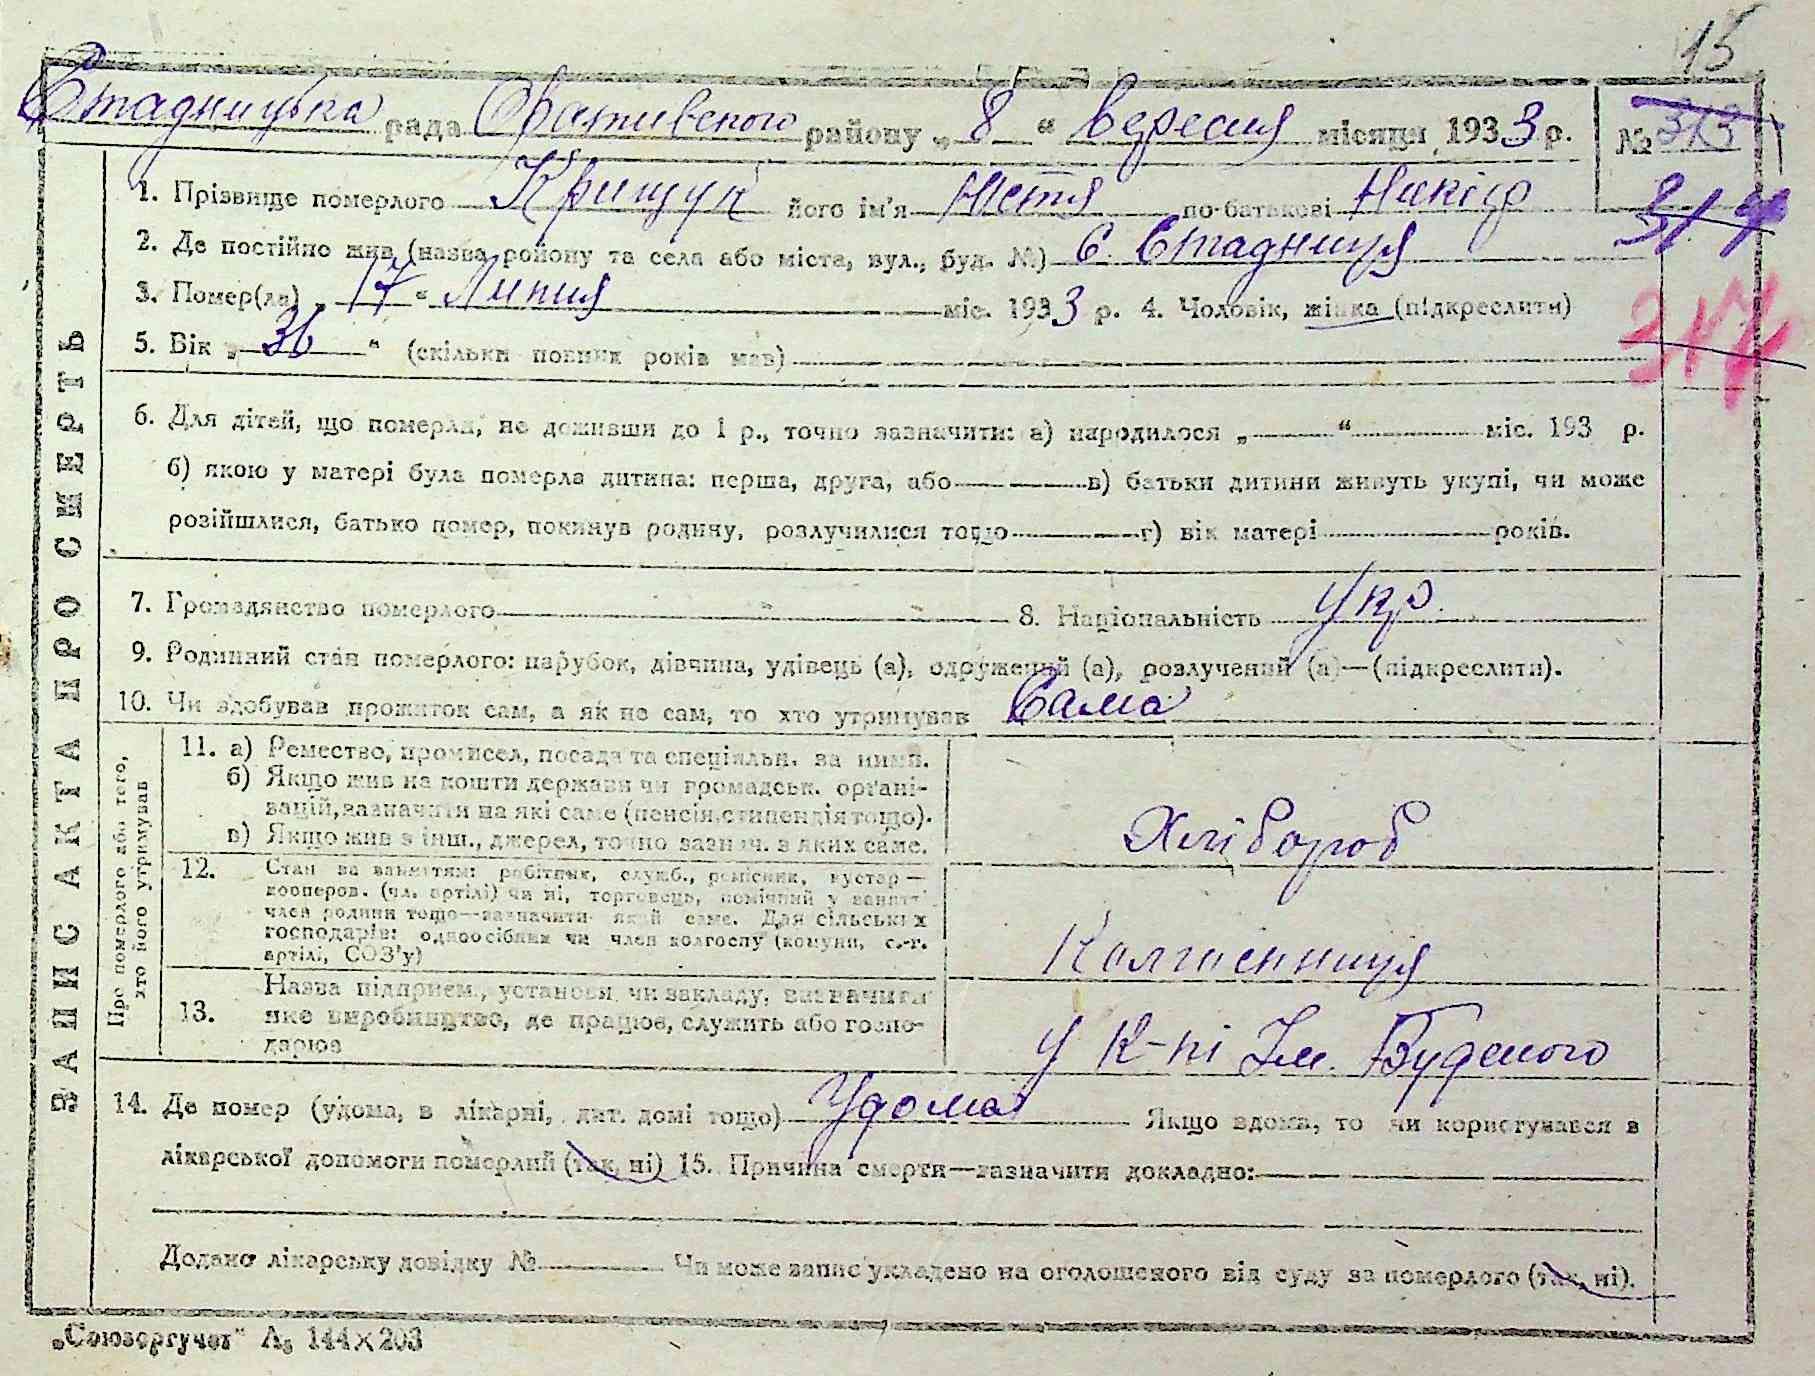 15
Стадницька рада Оратівського району „ 8 “ Вересня місяця 1933 р. № 313
1. Прізвище померлого Крищук його ім'я Настя по-батькові Никіф
314
2. Де постійно жив (назва району та села або міста, вул., буд. №) С. Стадниця
3. Помер(ла) „ 17 “ Липня міс. 1933 р. 4. Чоловік, жінка (підкреслити)
317
5. Вік „ 36 “ (скільки повних років мав)
6. Для дітей, що померли, не доживши до 1 р., точно зазначити: а) народилося „ “ міс. 193 р.
б) якою у матері була померла дитина: перша, друга, або в) батьки дитини живуть укупі, чи може
розійшлися, батько помер, покинув родину, розлучилися тощо г) вік матері років.
7. Громадянство померлого 8. Національність укр.
9. Родинний стан померлого: парубок, дівчина, удівець (а), одружений (а), розлучений (а)—(підкреслити).
10. Чи здобував прожиток сам, а як не сам, то хто утримував Сама
ЗАПИС АКТА ПРО СМЕРТЬ
Про померлого або того, хто його утримував
11. а) Ремество, промисел, посада та спеціяльн. за ними.
б) Якщо жив на кошти держави чи громадськ. органі-
зацій, зазначити на які саме (пенсія, стипендія тощо).
в) Якщо жив з інш., джерел, точно зазнач. з яких саме.
Хлібороб
12. Стан за заняттям: робітник, служб., ремісник, кустар—
кооперов. (чл. артілі) чи ні, торговець, помічний у занятті
член родини тощо—зазначити який саме. Для сільських
господарів: одноосібник чи член колгоспу (комуни, с.-г.
артілі, СОЗ'у)
Колгоспниця
13. Назва підприєм., установи чи закладу, визначити
яке виробництво, де працює, служить або госпо-
дарює
у К-пі Ім. Будьоного
14. Де помер (удома, в лікарні, дит. домі тощо) Удома Якщо вдома, то чи користувався в
лікарської допомоги померлий (так, ні) 15. Причина смерти—зазначити докладно:
Додано лікарську довідку № Чи може запис укладено на оголошеного від суду за померлого (так, ні).
„Союзоргучет“ А₅ 144×203